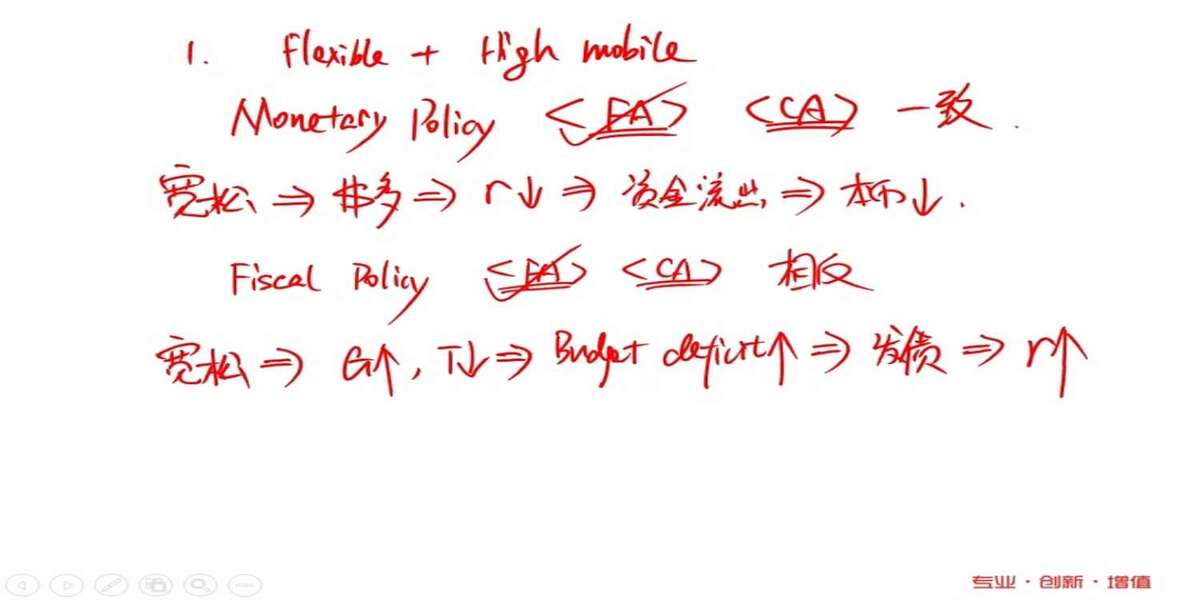 1. Flexible + High mobile
Monetary Policy <FA> <CA> 一致.
宽松 ⇒ $多 ⇒ r↓ ⇒ 资金流出 ⇒ 本币↓.
Fiscal Policy <FA> <CA> 相反
宽松 ⇒ G↑, T↓ ⇒ Budget deficit↑ ⇒ 发债 ⇒ r↑
专业·创新·增值